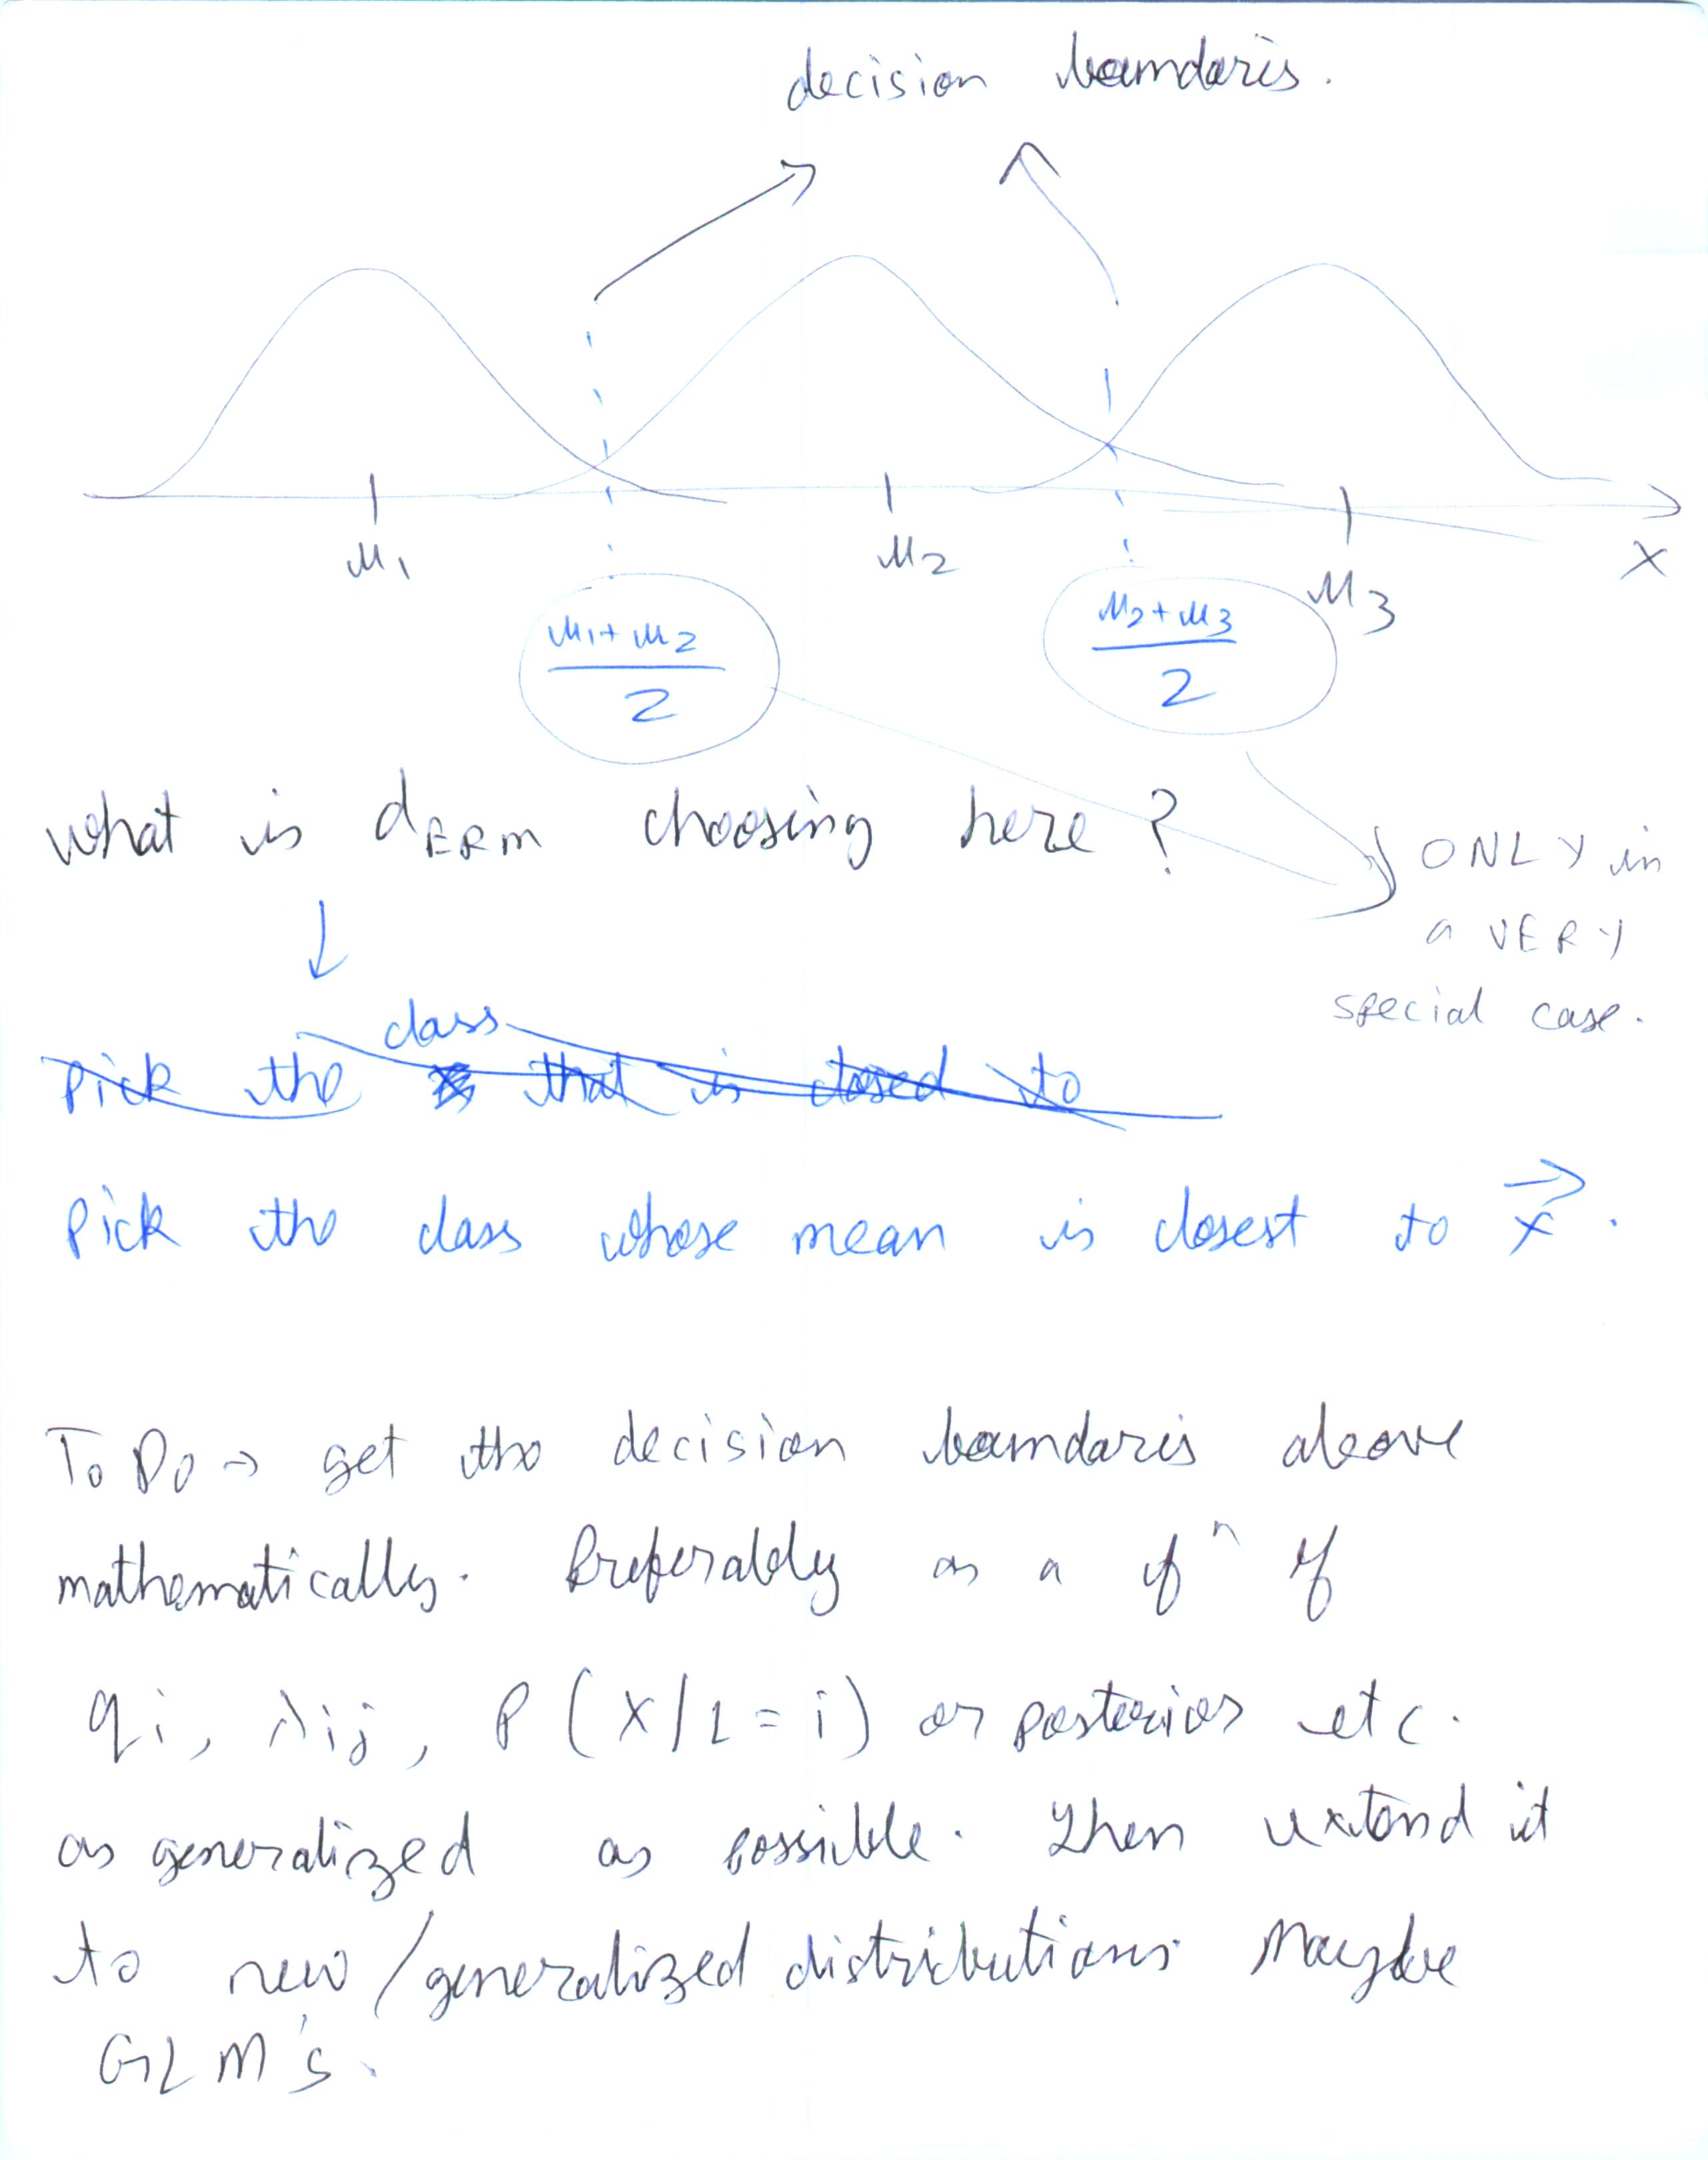 decision boundaris.
μ1 μ2 μ3 x
μ1+μ2 / 2
μ2+μ3 / 2
what is dERM choosing here?
ONLY in
a VERY
special case.
class
Pick the that is closed to
Pick the class whose mean is closest to x⃗.
To Do → get the decision boundaris above
mathematically. Preferably as a fⁿ of
qi, λij, P(X/L=i) or posterior etc.
as generalized as possible. Then extend it
to new/generalized distributions. Maybe
GLM's.